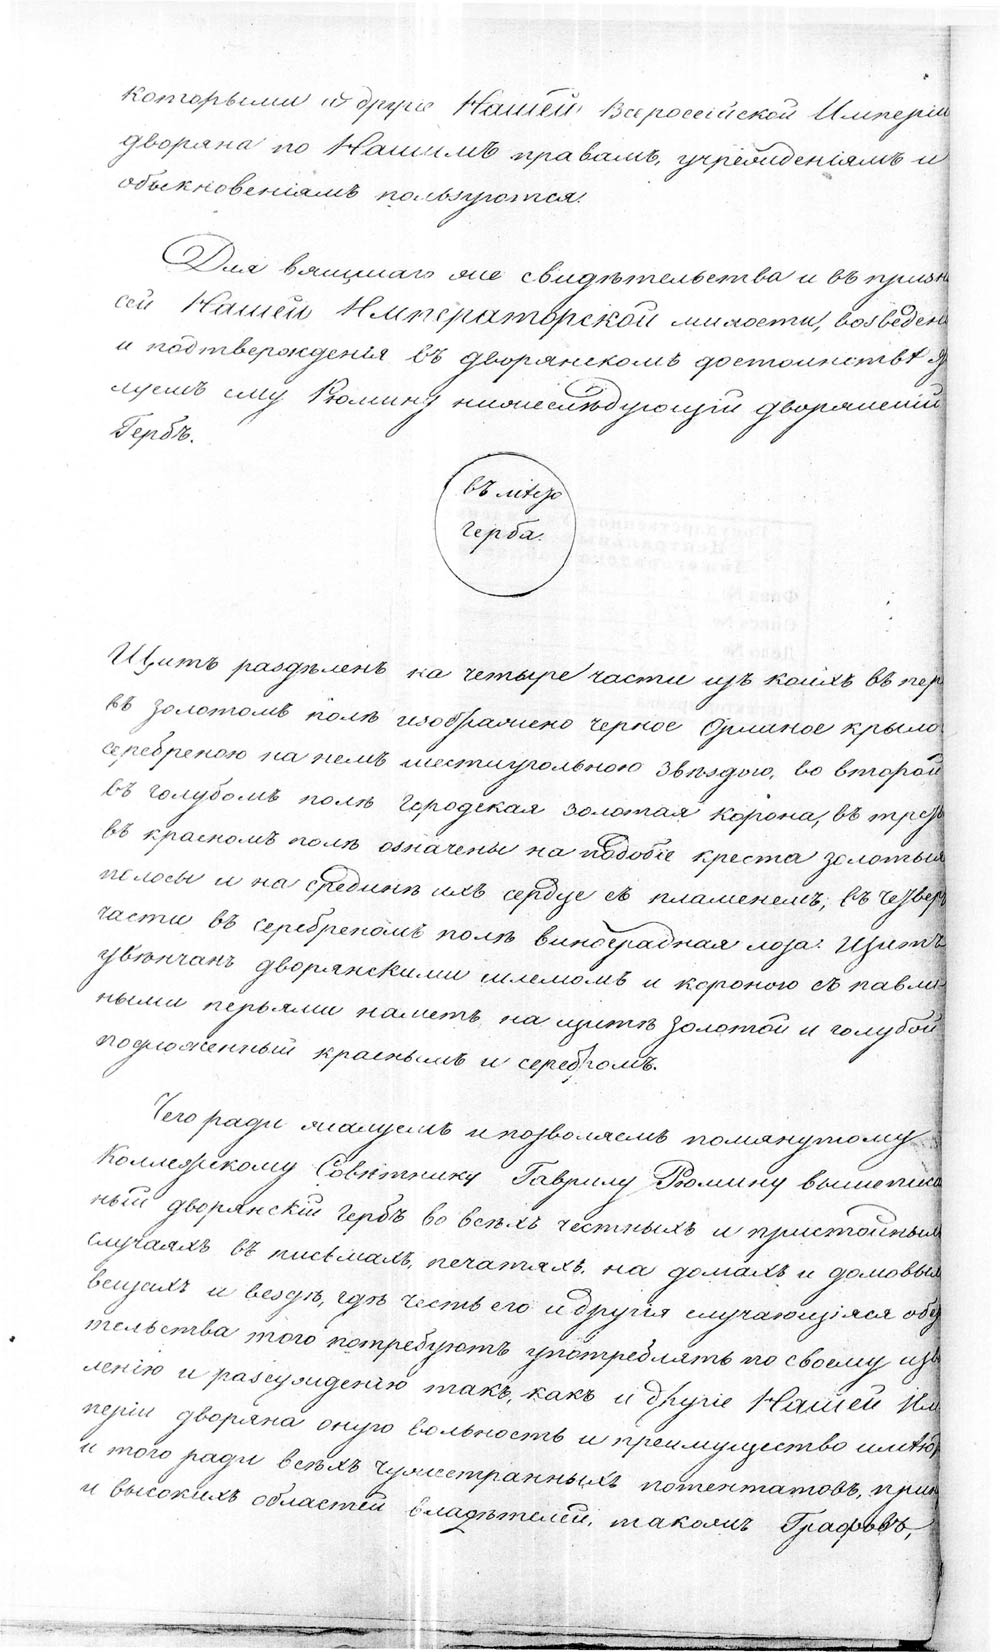 которыми и другіе Нашей Всероссійской Имперіи
дворяна по Нашимъ правамъ, учрежденіямъ и
обыкновеніямъ пользуются.
Для вящшаго же свидѣтельства и въ призн
сей Нашей Императорской милости, возведен
и подтвержденія въ дворянскомъ достоинствѣ
луемъ ему Рюмину нижеслѣдующій дворянскій
Гербъ.
въ мѣсто
герба.
Щитъ раздѣленъ на четыре части изъ коихъ въ пер
въ золотомъ полѣ изображено черное Орлиное крыло
серебреною на немъ шестиугольною звѣздою, во второй
въ голубомъ полѣ городская золотая корона, въ треть
въ красномъ полѣ означены на подобіе креста золотыя
полосы и на срединѣ ихъ сердце съ пламенемъ, въ четвер
части въ серебреномъ полѣ виноградная лоза. Щитъ
увѣнчанъ дворянскими шлемомъ и короною съ павли
ными перьями наметъ на щитѣ золотой и голубой
подложенный краснымъ и серебромъ.
Чего ради жалуемъ и позволяемъ помянутому
Коллежскому Совѣтнику Гаврилу Рюмину вышеписа
ный дворянскій гербъ во всѣхъ честныхъ и пристойныхъ
случаяхъ въ письмахъ, печатяхъ, на домахъ и домовыхъ
вещахъ и вездѣ, гдѣ честь его и другія случающіяся обсу
тельства того потребуютъ употреблять по своему изво
ленію и разсужденію такъ, какъ и другіе Нашей Им
періи дворяна оную вольность и преимущество имѣю
и того ради всѣхъ чужестранныхъ потентатовъ, прин
и высокихъ областей владѣтелей, такожъ Графовъ,